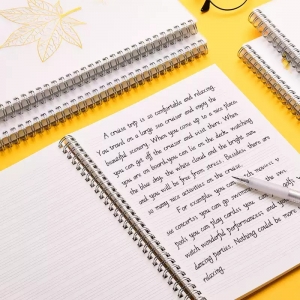 A cruise trip is so comfortable and relaxing.
You travel on a large sea cruiser and enjoy the
beautiful scenery. When you come up to a nice place,
you can get off the cruiser and visit there. When
you are on board, you can lie on the deck, watching
the blue sky, the white cloud and the bright sun
and you will be free from press. Besides there are
so many nice activities on the cruise.
For example, you can watch movies
see concerts you can go swimming
golf
pools you can play cards you can
watch wonderful performances and
dancing parties. Nothing could be more
relaxing.